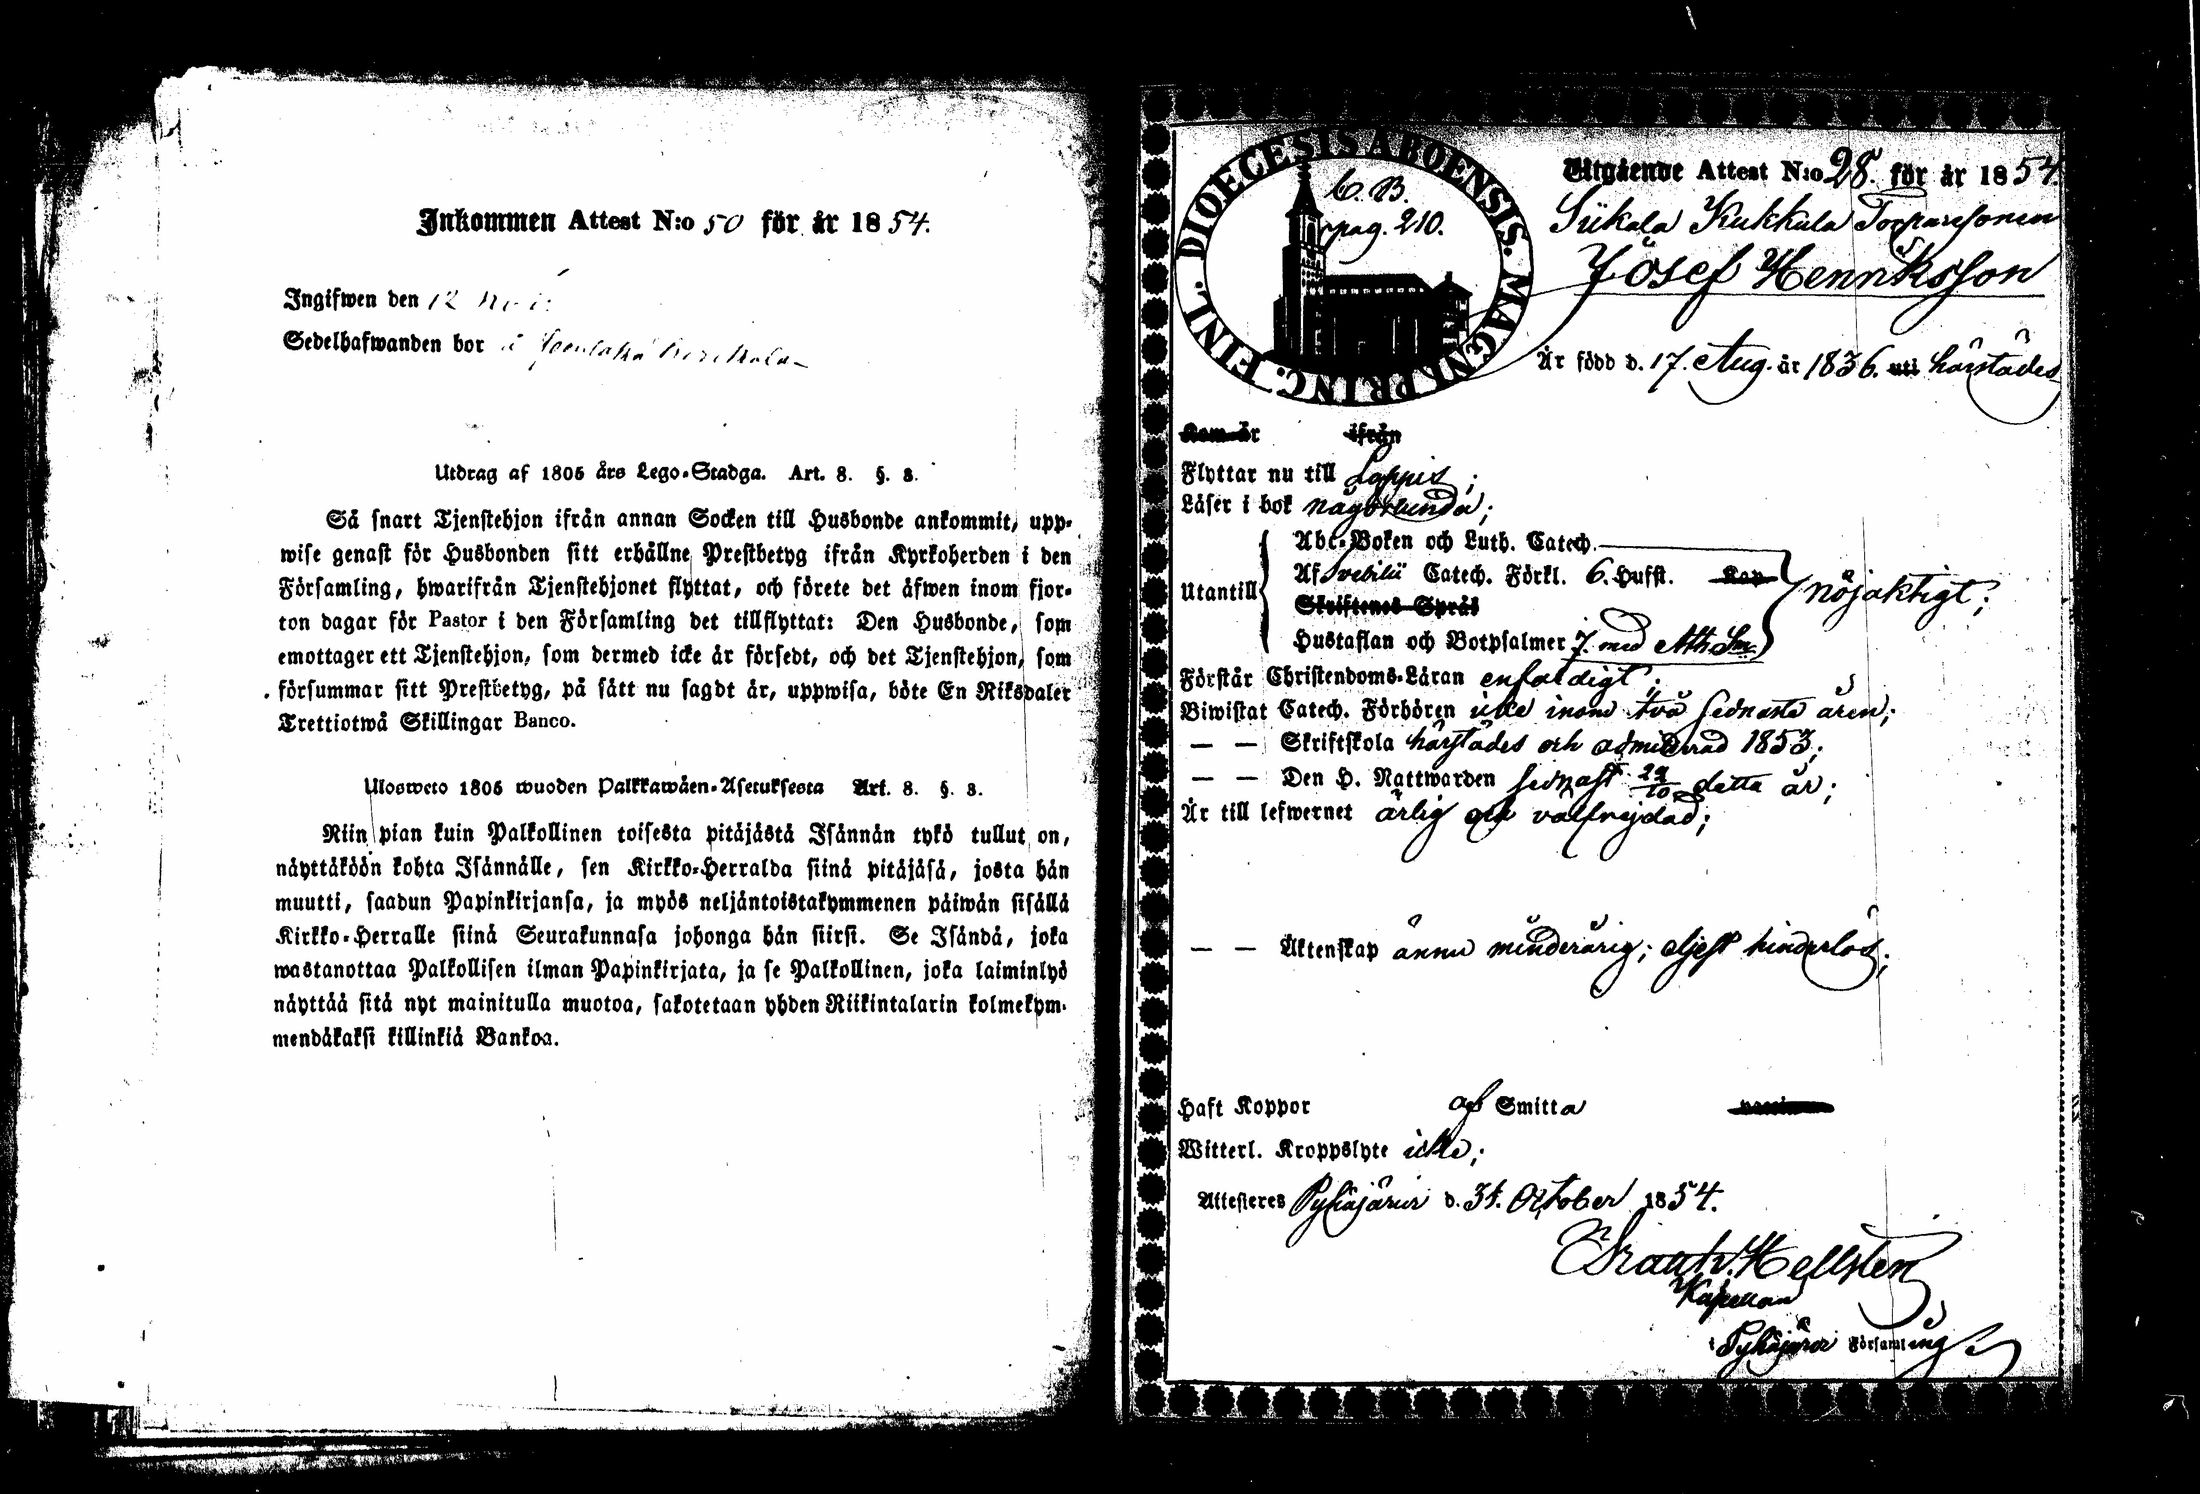 Inkommen Attest N:o 50 för år 1854.
Ingifwen den 12
Sedelhafwanden bor
Utdrag af 1805 års Lego-Stadga. Art. 8. §. 8.
Så snart Tjenstehjon ifrån annan Socken till Husbonde ankommit, upp-
wise genast för Husbonden sitt erhållne Prestbetyg ifrån Kyrkoherden i den
Församling, hwarifrån Tjenstehjonet flyttat, och förete det äfwen inom fjor-
ton dagar för Pastor i den Församling det tillflyttat: Den Husbonde, som
emottager ett Tjenstehjon, som dermed icke är försedt, och det Tjenstehjon, som
försummar sitt Prestbetyg, på sätt nu sagdt är, uppwisa, böte En Riksdaler
Trettiotwå Skillingar Banco.
Ulosweto 1805 wuoden Palkkawäen-Asetuksesta Art. 8. §. 8.
Niin pian kuin Palkollinen toisesta pitäjästä Isännän tykö tullut on,
näyttäköön kohta Isännälle, sen Kirkko-Herralda siinä pitäjäsä, josta hän
muutti, saadun Papinkirjansa, ja myös neljäntoistakymmenen päiwän sisällä
Kirkko-Herralle siinä Seurakunnasa johonga hän siirsi. Se Isändä, joka
wastanottaa Palkollisen ilman Papinkirjata, ja se Palkollinen, joka laiminlyö
näyttää sitä nyt mainitulla muotoa, sakotetaan yhden Riikintalarin kolmekym-
mendäkaksi killinkiä Bankoa.
DIOECESIS ABOENSIS. MAGNI PRINC. FINL.
C. B.
pag. 210.
Utgående Attest N:o 28. för år 1854.
Siikala Kukkula Torparesonen
Josef Henriksson
Är född d. 17. Aug. år 1836. uti härstädes
Kom år ifrån
Flyttar nu till Loppis;
Läser i bok någorlunda;
Utantill
Abc-Boken och Luth. Catech.
Af Svebilii Catech. Förkl. 6. Hufst. Kap
Skriftenes Språk
Hustaflan och Botpsalmer 7. med Ath. Sm.
nöjaktigt;
Förstår Christendoms-Läran enfaldigt;
Biwistat Catech. Förhören icke inom två sednaste åren;
— — Skriftskola härstädes och admitterad 1853;
— — Den H. Nattwarden sednast 22/10 detta år;
Är till lefwernet ärlig och välfrejdad;
— — Äktenskap ännu minderårig; eljest hinderlös;
Haft Koppor af Smitta
Witterl. Kroppslyte icke;
Attesteres Pyhäjärvi d. 31. October 1854.
Frantz. Hellsten
Kapellan
i Pyhäjärvi Församling